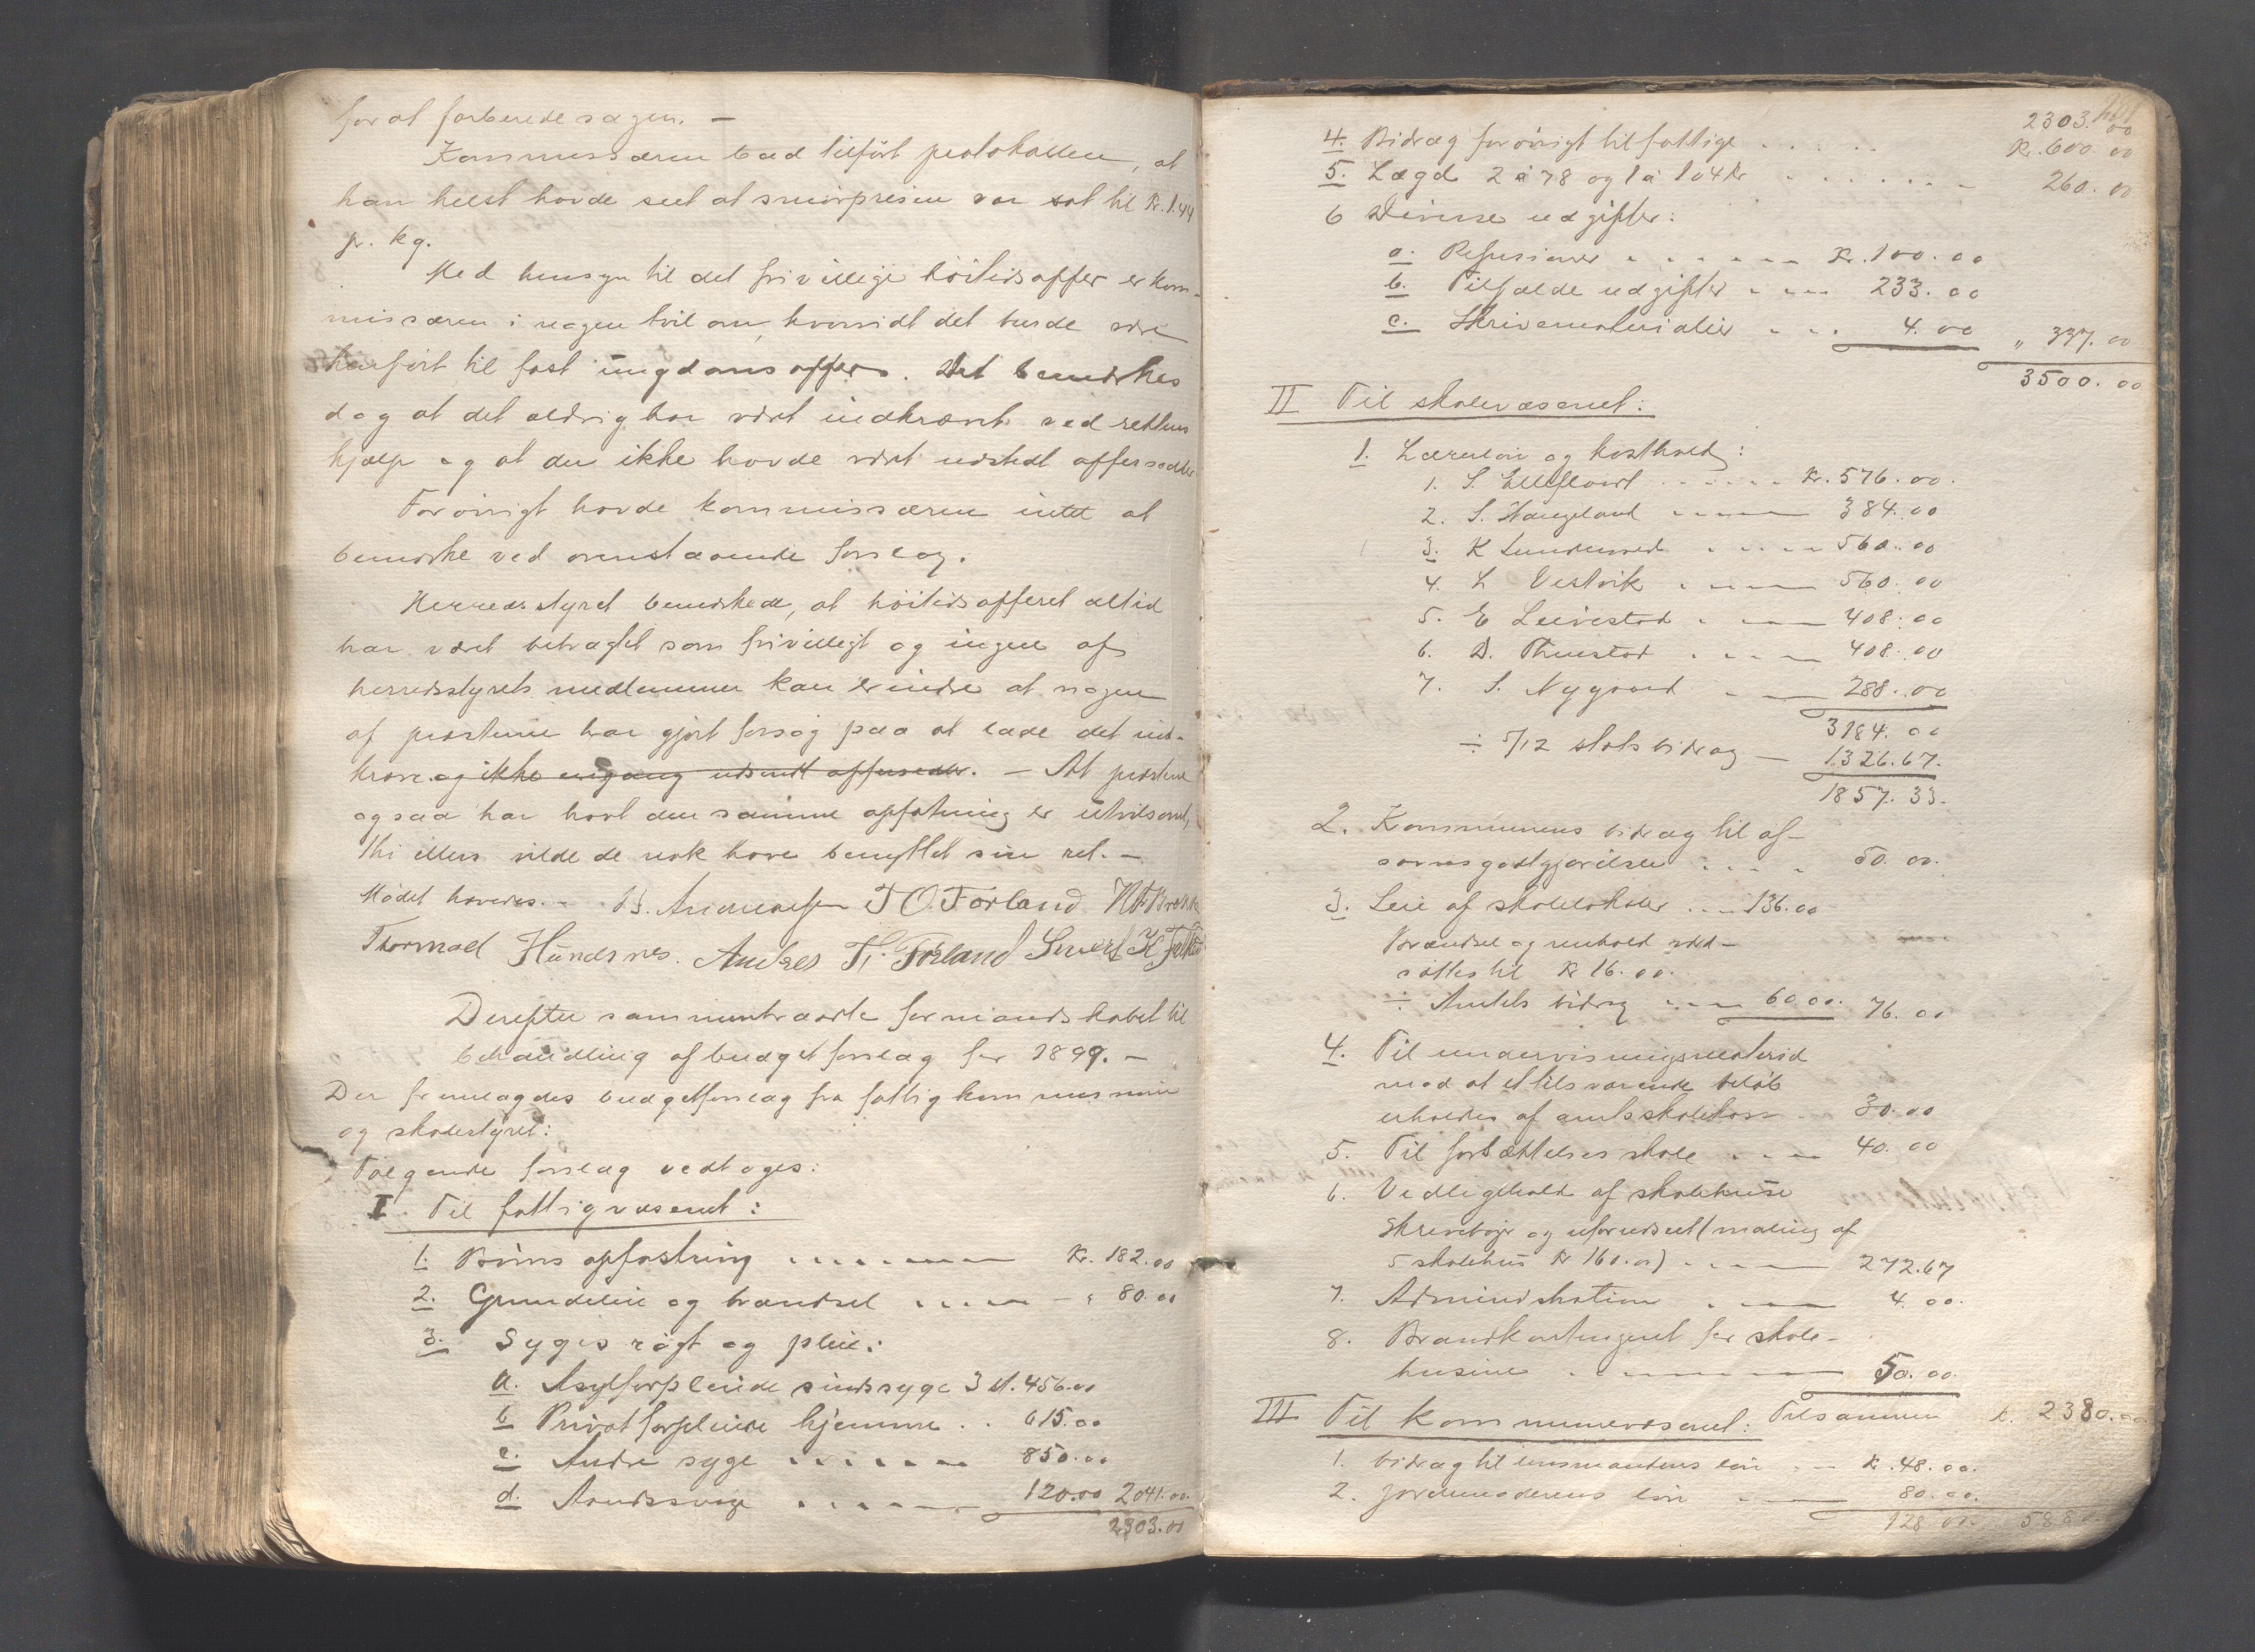 for at forberede sagen. —
Kommissæren bad tilført protokollen, at
han helst havde seet at smørprisen var sat til Kr. 1.44
pr. kg.
Med hensyn til det frivillige høitidsoffer er kom-
missæren i nogen tvil om, hvorvidt det burde være
henført til fast ungdomsoffer. Det bemærkes
dog at det aldrig har været indkrævet ved rettens
hjælp og at der ikke havde været udstedt offersedler
Forøvrigt havde kommissæren intet at
bemærke ved ovenstaaende forslag.
Herredsstyret bemærkede, at høitidsofferet altid
har været betragtet som frivilligt og ingen af
herredsstyrets medlemmer kan erindre at nogen
af presterne har gjort forsøg paa at lade det ind-
kræve og ikke engang udsendt offersedler. — At presterne
ogsaa har havt den samme opfatning er utvilsomt,
thi ellers vilde de nok have benyttet sin ret. —
Mødet hævedes. — T O. Førland
Thormod Hundsnes. Andres T. Førland Sivert K
Derefter sammentraadte formandskabet til
behandling af budgetforslag for 1899. —
Der fremlagdes budgetforslag fra fattigkommissionen
og skolestyret:
Følgende forslag vedtoges:
I Til fattigvæsenet:
1. Børns opfostring Kr. 182.00
2. Grundleie og brændsel " 80.00
3. Syges røgt og pleie:
a. Asylforpleiede sindssyge 3 st. 456.00
b Privatforpleiede hjemme 615.00
c. Andre syge 850.00
d. Aandssvage 120.00 2041.00
2303.00
2303.00
4. Bidrag forøvrigt til fattige Kr. 600.00
5. Lægd 2 à 78 og 1 à 104 Kr 260.00
6 Diverse udgifter:
a. Refusioner Kr. 100.00
b. Tilfældige udgifter 233.00
c. Skrivematerialier 4.00 " 337.00
3500.00
II Til skolevæsenet:
1. Lærerløn og kosthold:
1. S. Kr. 576.00.
2. S. Haugeland 384.00
3. K 560.00
4. L Vestvik 560.00
5. E Leivestad 408.00
6. D. Thuestad 408.00
7. S. Nygaard 288.00
3184.00
÷ 5/12 statsbidrag — 1326.67.
1857.33.
2. Kommunens bidrag til af-
savnsgodtgjørelse 50.00.
3. Leie af skolelokaler 136.00
Brændsel og renhold ved-
sættes til Kr 16.00.
÷ Amtets bidrag 60.00. 76.00
4. Til undervisningsmateriel
mod at et tilsvarende beløb
erholdes af amtsskolekassen 30.00
5. Til fortsættelsesskole 40.00
6. Vedligehold af skolehusene
Skrivebøger og uforudseet (maling af
5 skolehus Kr 160.00) 272.67
7. Administration 4.00.
8. Brandkontingent for skole-
husene 50.00.
Tilsammen k. 2380.00
III Til kommunevæsenet:
1. bidrag til lensmandens løn Kr. 48.00.
2. jordemoderens løn 80.00.
128.00. 5880